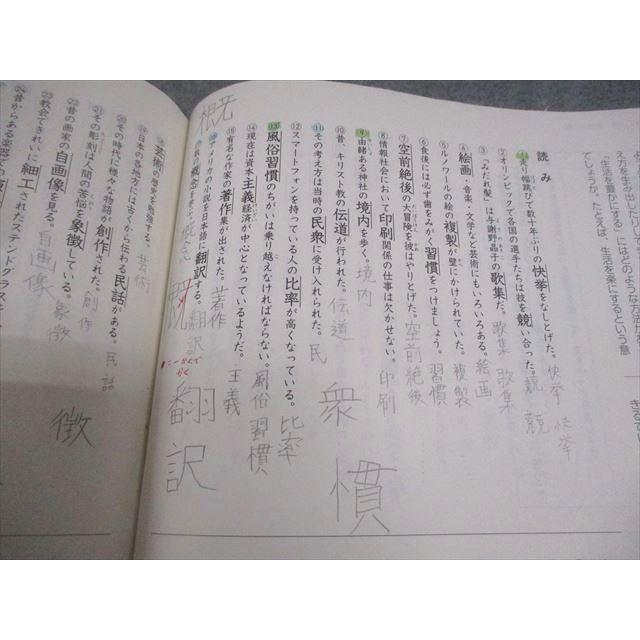 方を生み出したりし
「生活を豊かにする」にはどのような方法が
でしょうか。たとえば、生活を楽にするという意
きるで
読み
① 走り幅跳びで数十年ぶりの快挙をなしとげた。 快挙 快挙
② オリンピックで各国の選手たちは技を競い合った。 競 競
③ 『みだれ髪』は与謝野晶子の歌集だ。 歌集 歌集
④ 絵画・音楽・文学など芸術にもいろいろある。 絵画
⑤ ルノワールの絵の複製が壁にかけられていた。 複製
⑥ 食後には必ず歯をみがく習慣をつけましょう。 習慣
⑦ 空前絶後の大冒険を彼はやりとげた。 空前絶後
⑧ 情報社会において印刷関係の仕事は欠かせない。 印刷
⑨ 由緒ある神社の境内を歩く。 境内
⑩ 昔、キリスト教の伝道が行われた。 伝道
⑪ その考え方は当時の民衆に受け入れられた。 民衆
⑫ スマートフォンを持っている人の比率が高くなっている。 比率
⑬ 風俗習慣のちがいは乗り越えなければならない。 風俗習慣
慣
⑭ 現在は資本主義経済が中心となっているようだ。 主義
⑮ 有名な作家の著作集が出された。 著作
⑯ アメリカの小説を日本語に翻訳する。 翻訳
翻訳
概念
概
概
かく
⑱ 芸術の歴史を勉強する。 芸術
⑲ 日本の各地方には古くから伝わる民話がある。 民話
⑳ その時代に様々な物語が創作された。 創作
㉑ その彫刻は人間の苦悩を象徴している。 象徴
徴
㉒ 昔の画家の自画像を見る。 自画像
㉓ 教会できれいに細工されたステンドグラスを
㉔ 昔からある楽器で